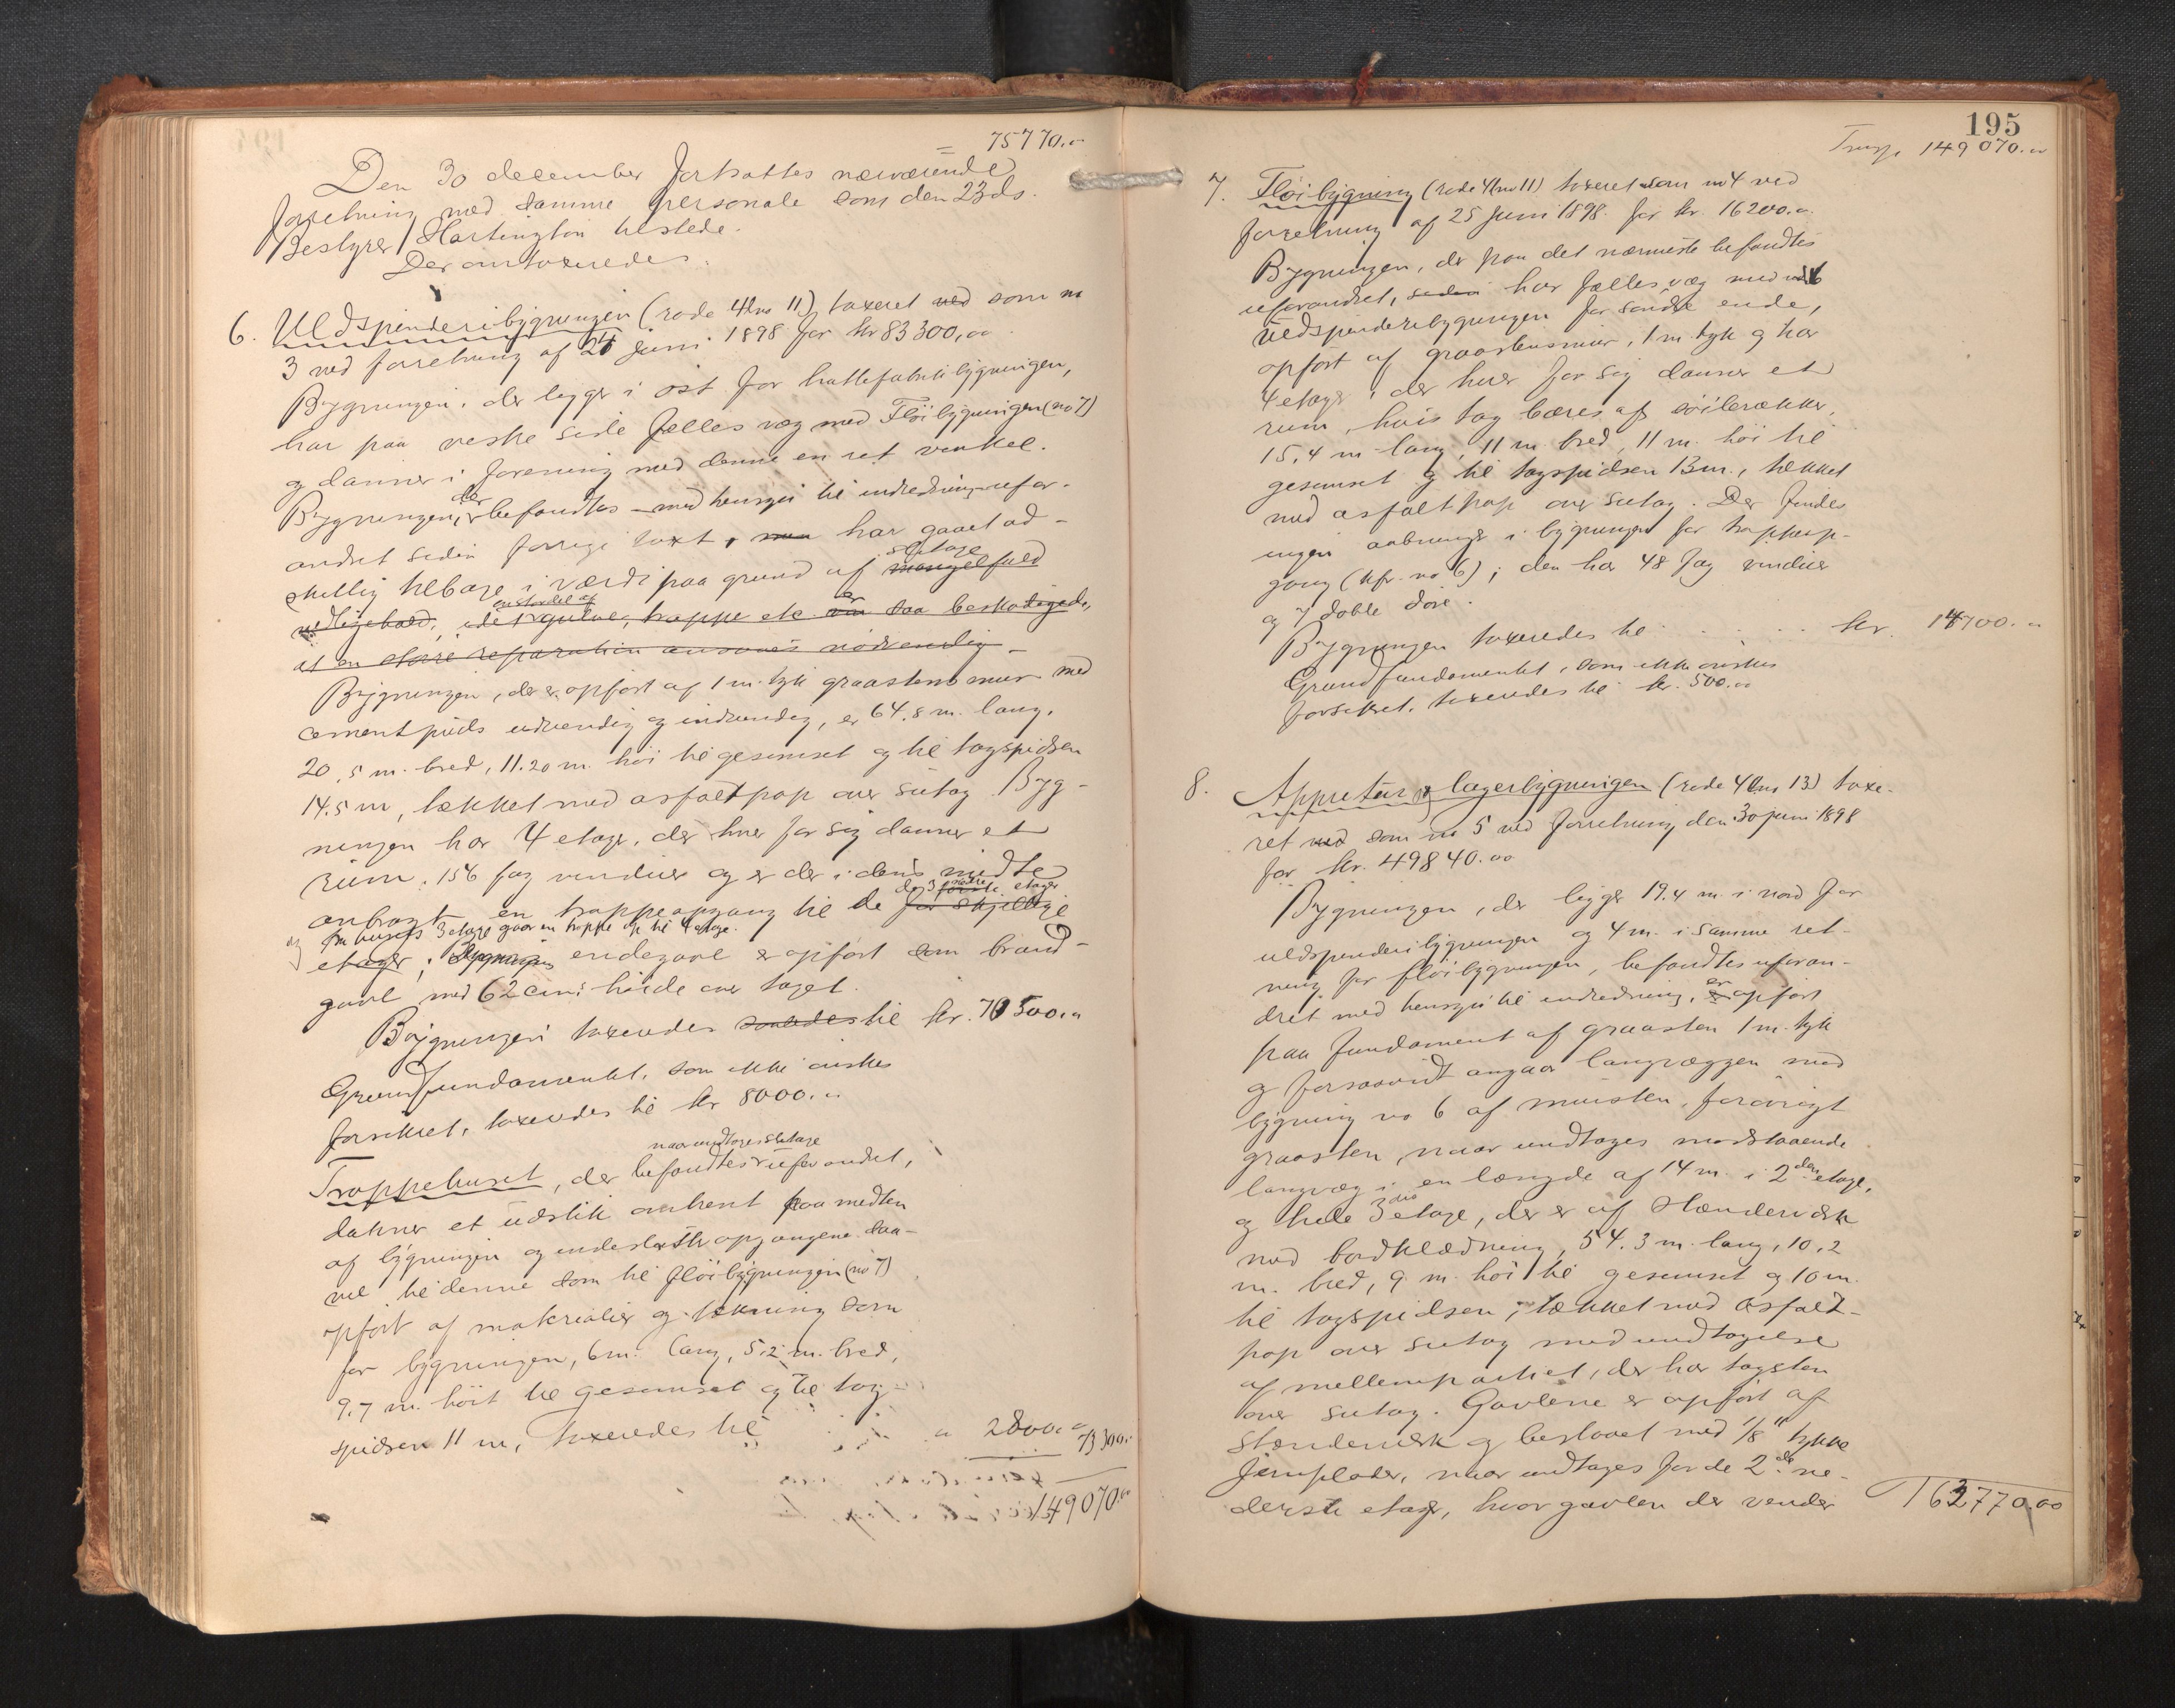 75770.00
Den 30 december fortsattes nærværende
forretning med samme personale som den 23 ds.
Bestyrer Hartington tilstede.
Der omtaxeredes:
6. Uldspinderibygningen (rode 4 lno 11) taxeret ved som no
3 ved forretning af 24 juni 1898 for kr 83300,00
Bygningen, der ligger i øst for hattefabrikbygningen,
har paa vestre side fælles væg med Fløibygningen (no 7)
og danner i forening med denne en ret vinkel.
Bygningen, der befandtes med hensyn til indredning ufor-
andret siden forrige taxt, har gaaet ad-
skillig tilbage i værdi paa grund af mangelfuld
slitage
vedligehold, idet gulve, trappe etc. er saa beskadigede,
en stor del af
at en større reparation ansaaes nødvendig
Bygningen, der er opført af 1 m. tyk graastensmur med
cementpuds udvendig og indvendig, er 64.8 m. lang,
20,5 m. bred, 11.20 m. høi til gesimset og til tagspidsen
14.5 m, tækket med asfaltpap over sutag. Byg-
ningen har 4 etager, der hver for sig danner et
rum, 156 fag vinduer og er der i dens midte
anbragt en trappeopgang til de forskjellige
de 3 første nedre etager
og fra husets 3 etage gaar en trappe op til 4 etage.
etager; Bygningens endegavl er opført som brand-
gavl med 62 cm's høide over taget.
Bygningen taxeredes saaledes til kr. 70500.00
Grundfundamentet, som ikke ønskes
forsikret, taxeredes til kr 8000.00
naar undtages slitage
Trappehuset, der befandtes uforandret,
danner et udstik omtrent paa midten
af bygningen og indeslutter opgangene saa-
vel til denne som til fløibygningen (no 7)
opført af materialier og tækning som
for bygningen, 6 m. lang, 5,2 m. bred,
9.7 m. høit til gesimset og til tag-
spidsen 11 m, taxeredes til " 2800.00
73300.00
149070.00
195
Transp. 149070.00
7. Fløibygning (rode 4 lno 11) taxeret som no 4 ved
forretning af 25 juni 1898 for kr. 16200.00
Bygningen, der paa det nærmeste befandtes
uforandret, siden har fælles væg med no 6
uldspinderibygningen for søndre ende,
opført af graastensmur, 1 m. tyk og har
4 etager, der hver for sig danner et
rum, hvis tag bæres af søilerækker,
15,4 m lang, 11 m. bred, 11 m. høi til
gesimset og til tagspidsen 13 m., tækket
med asfaltpap over sutag. Der findes
ingen aabninger i bygningen for trappeop-
gang (kfr. no 6); den har 48 fag vinduer
og 7 doble døre.
Bygningen taxeredes til . . . . kr. 14700.00
Grundfundamentet, som ikke ønskes
forsikret, taxeredes til kr. 500.00
8. Appretur og lagerbygningen (rode 4 lno 13) taxe-
ret ved som no 5 ved forretning den 30 juni 1898
for kr. 49840.00
Bygningen, der ligger 19.4 m. i nord for
uldspinderibygningen og 4 m. i samme ret-
ning for fløibygningen, befandtes uforan-
dret med hensyn til indredning, er opført
paa fundament af graasten 1 m. tyk
og forsaavidt angaar langvæggen mod
bygning no 6 af mursten, forøvrigt
graasten, naar undtages modstaaende
langvæg i en længde af 14 m. i 2den etage,
og hele 3die etage, der er af stænderværk
med bordklædning, 54.3 m. lang, 10,2
m. bred, 9 m. høi til gesimset og 10 m.
til tagspidsen, tækket med asfalt-
pap over sutag med undtagelse
af mellempartiet, der har tagsten
over sutag. Gavlene er opført af
stænderværk og beslaaet med 1/8" tykke
jernplader, naar undtages for de 2de ne-
derste etager, hvor gavlen der vender
163770.00